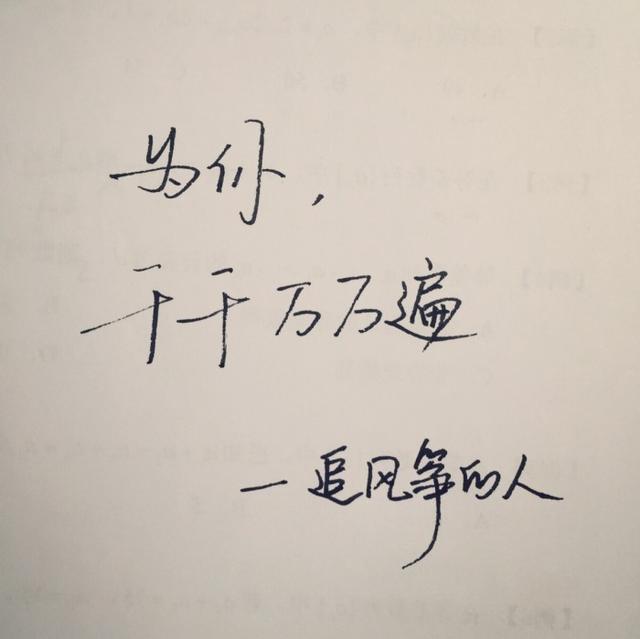 为你，
千千万万遍
—追风筝的人